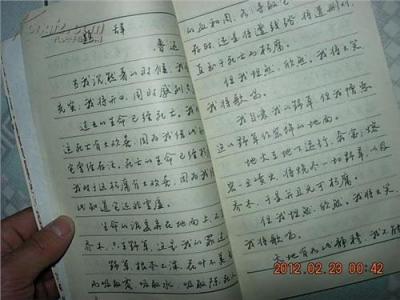 题 辞
鲁迅
当我沉默着的时候,我
充实;我将开口,同时感到
过去的生命已经死亡。我
这死亡有大欢喜,因为我借此
它曾经存活。死亡的生命已经
我对于这朽腐有大欢喜,因为我
此知道它还非空虚。
生命的泥委弃在地面上,不
乔木,只生野草,这是我的罪过
野草,根本不深,花叶不美
而吸取露,吸取水,吸取陈死
的血和肉,各各夺取它
存时,还是将遭践踏,将遭删刈,
直至于死亡而朽腐。
但我坦然,欣然。我将大笑
我将歌唱。
我自爱我的野草,但我憎恶
这以野草作装饰的地面。
地火在地下运行,奔突;熔
岩一旦喷出,将烧尽一切野草,以及
乔木,于是并且无可朽腐。
但我坦然,欣然。我将大笑,
我将歌唱。
天地有如此静穆,我不能
2012.02.23 00:42